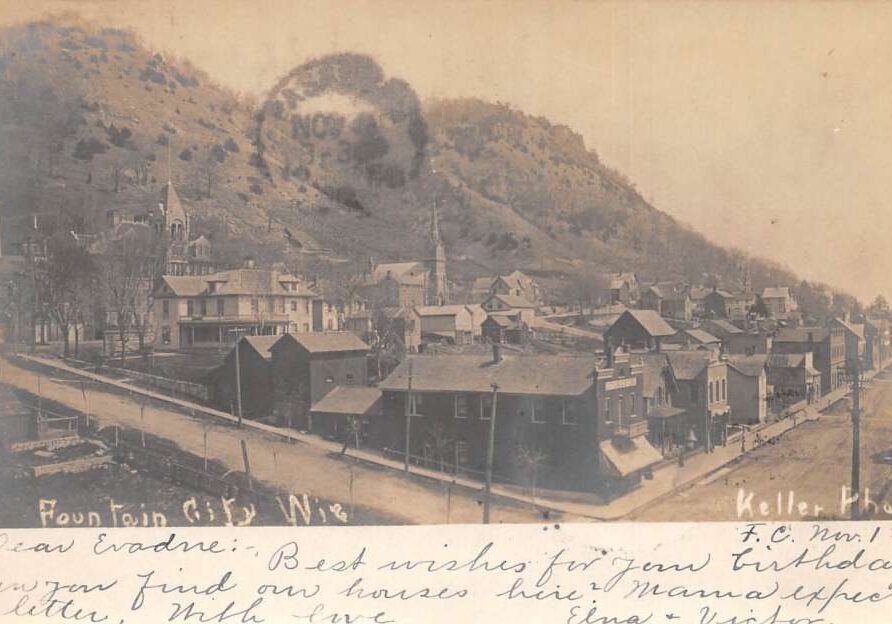 NOV
Fountain City Wis
Keller Pho
F.C. Nov. 1
Dear Evadne:- Best wishes for your birthda
you find our houses here? Mama expec
letter. With love Elna + Victor.